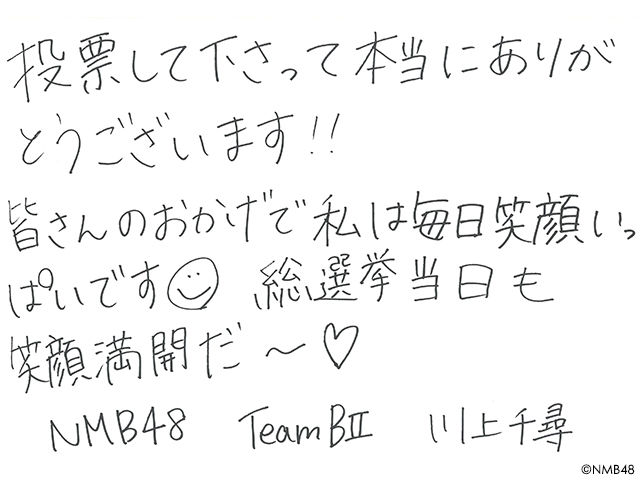 投票して下さって本当にありが
とうございます!!
皆さんのおかげで私は毎日笑顔いっ
ぱいです☺ 総選挙当日も
笑顔満開だ〜♡
NMB48 TeamBⅡ 川上千尋
©NMB48